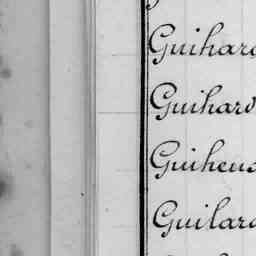 Guihard
Guihard
Guiheno
Guilard